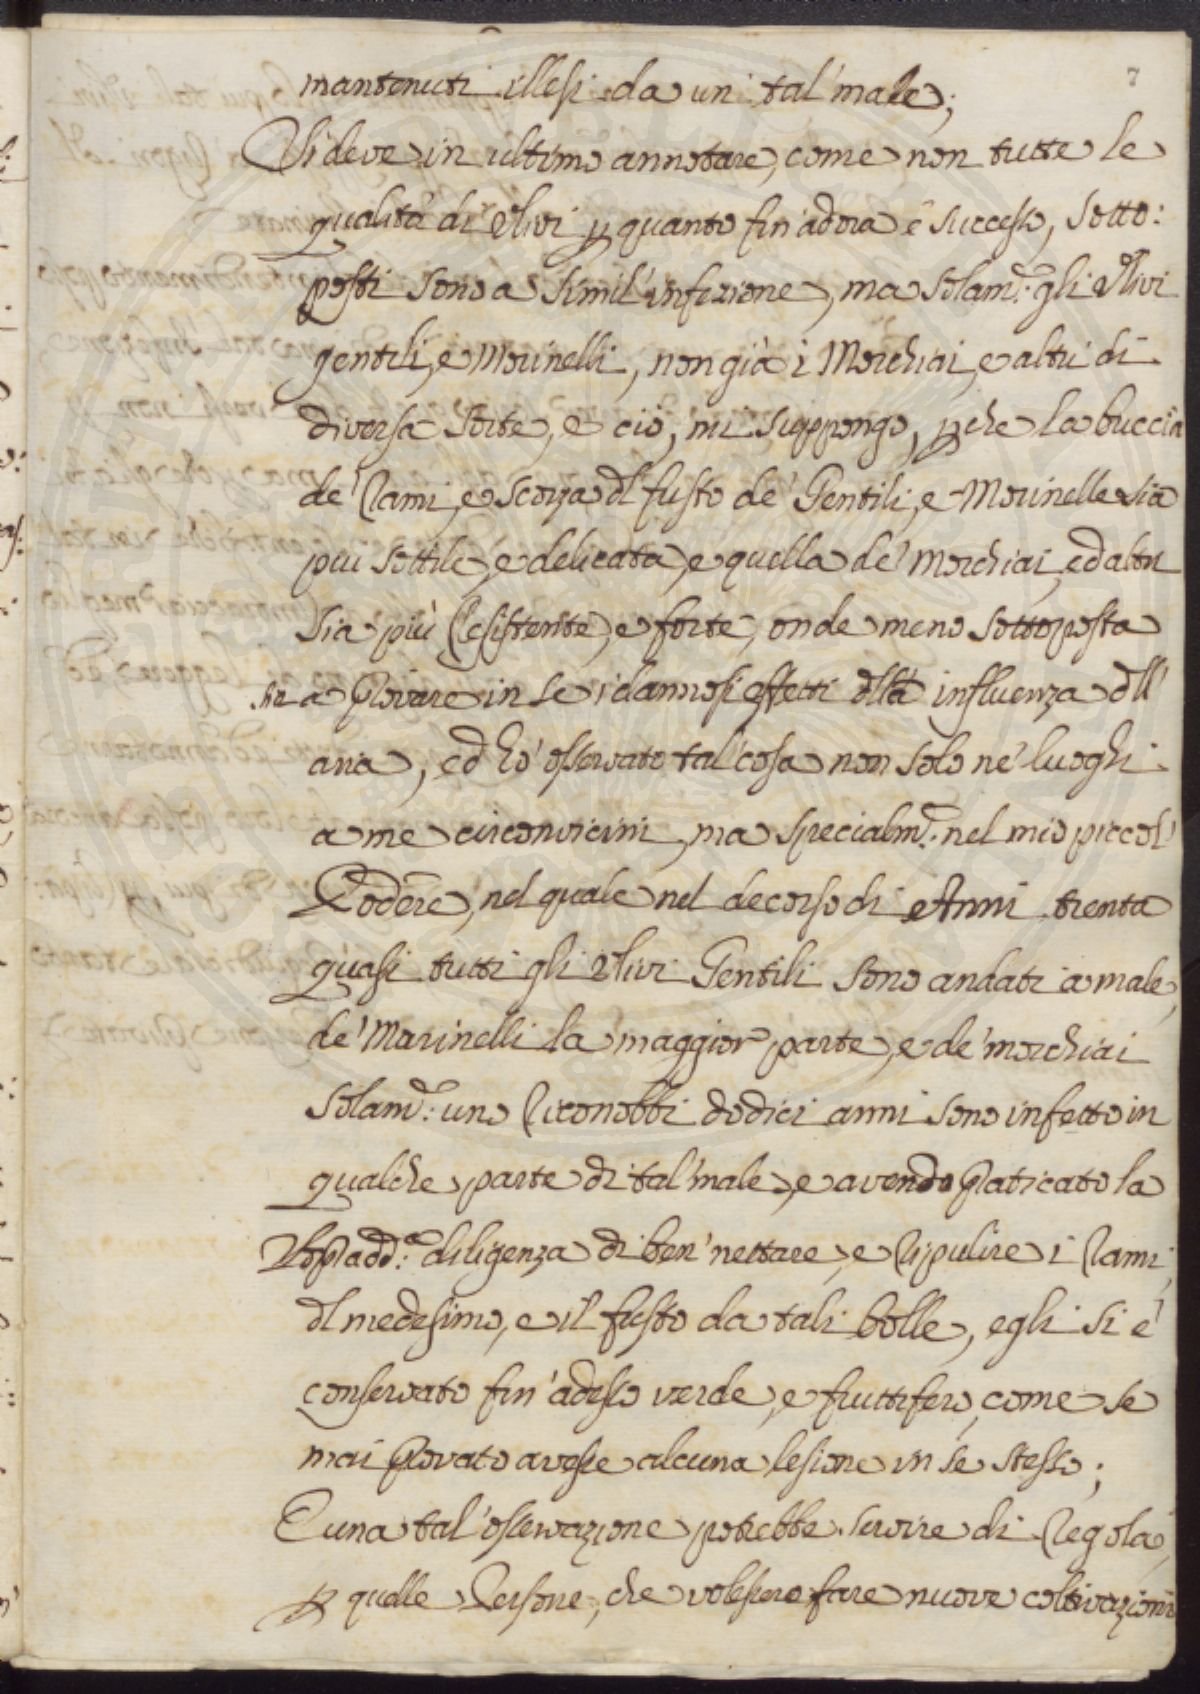 7
mantenuti illesi da un tal' male;
Si deve in ultimo annotare, come non tutte le
qualità di Ulivi p quanto fin' adora è successo, sotto:
posti sono a simil' infezione, ma solam.e gli Ulivi
gentili, e Morinelli, non già i Morchiai, e altri di
diversa sorte, e ciò, mi suppongo, pche la buccia
de' Rami, e scorza dl fusto de' Gentili, e Morinelle sia
piu sottile, e delicata, e quella de' Morchiai, ed altri
sia più Resistente, e forte, onde meno sottoposta
a Provare in se i dannosi effetti dlla influenza dll'
aria, ed hò osservato tal' cosa non solo ne' luoghi
a me circonvicini, ma specialm.e nel mio piccol'
Podere, nel quale nel decorso di Anni trenta
quasi tutti gli Ulivi Gentili sono andati a male,
de' Marinelli la maggior parte, e de' morchiai
solam.e uno Riconobbi dodici anni sono infetto in
qualche parte di tal' male, e avendo Praticato la
sopradd.a diligenza di ben' nettare, e Ripulire i Rami
dl medesimo, e il fusto da tali bolle, egli si è
conservato fin' adesso verde, e fruttifero, come se
mai Provato avesse alcuna lesione in se stesso;
E una tal' osservazione potrebbe servire di Regola,
p quelle Persone, che volessero fare nuove coltivazioni